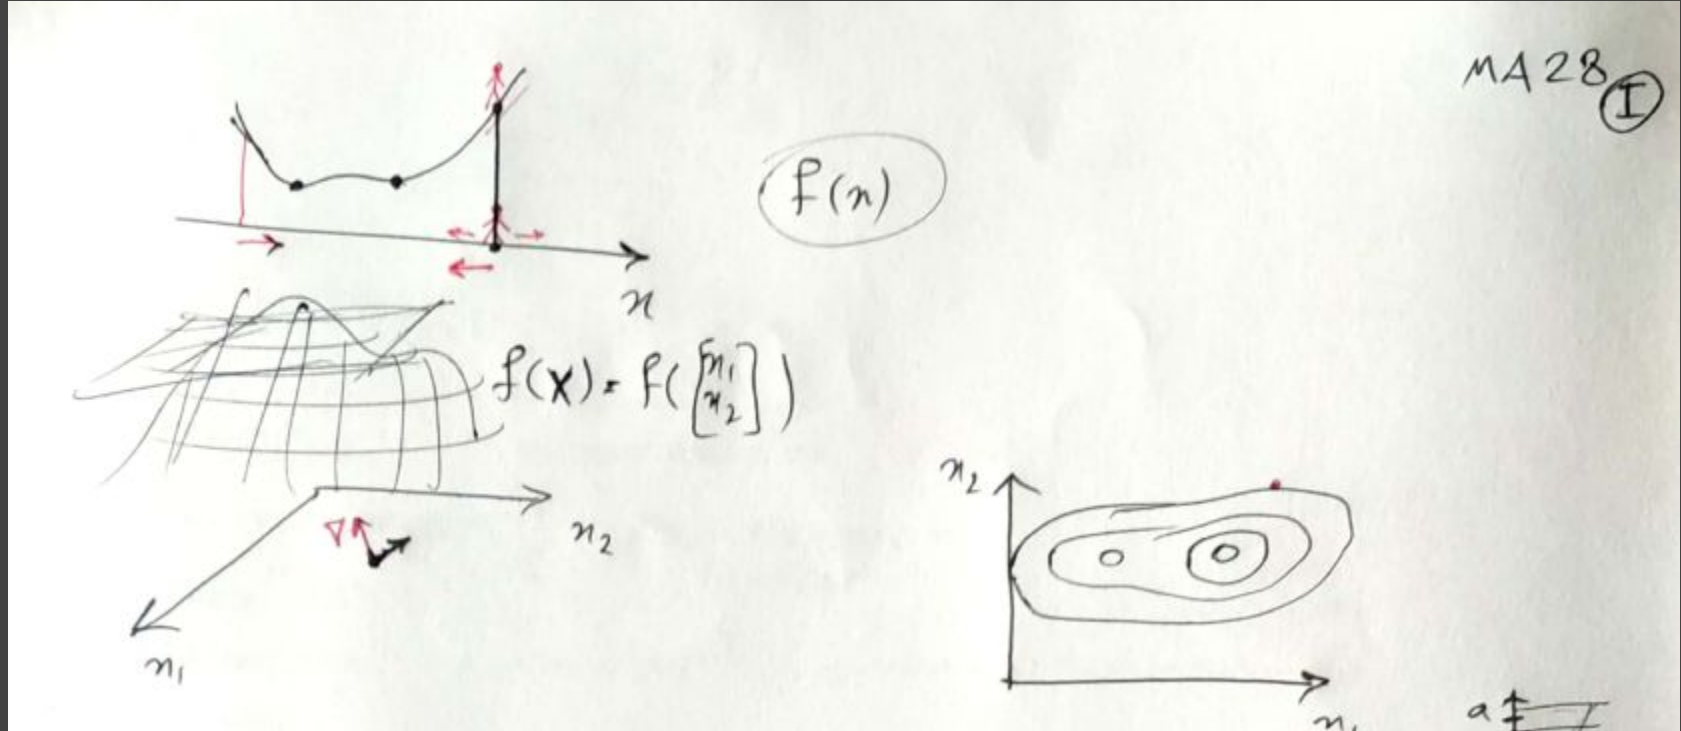 MA28
I
f(x)
x
f(X) = f([x₁ x₂])
x₂
∇
x₁
x₂
x₁
a